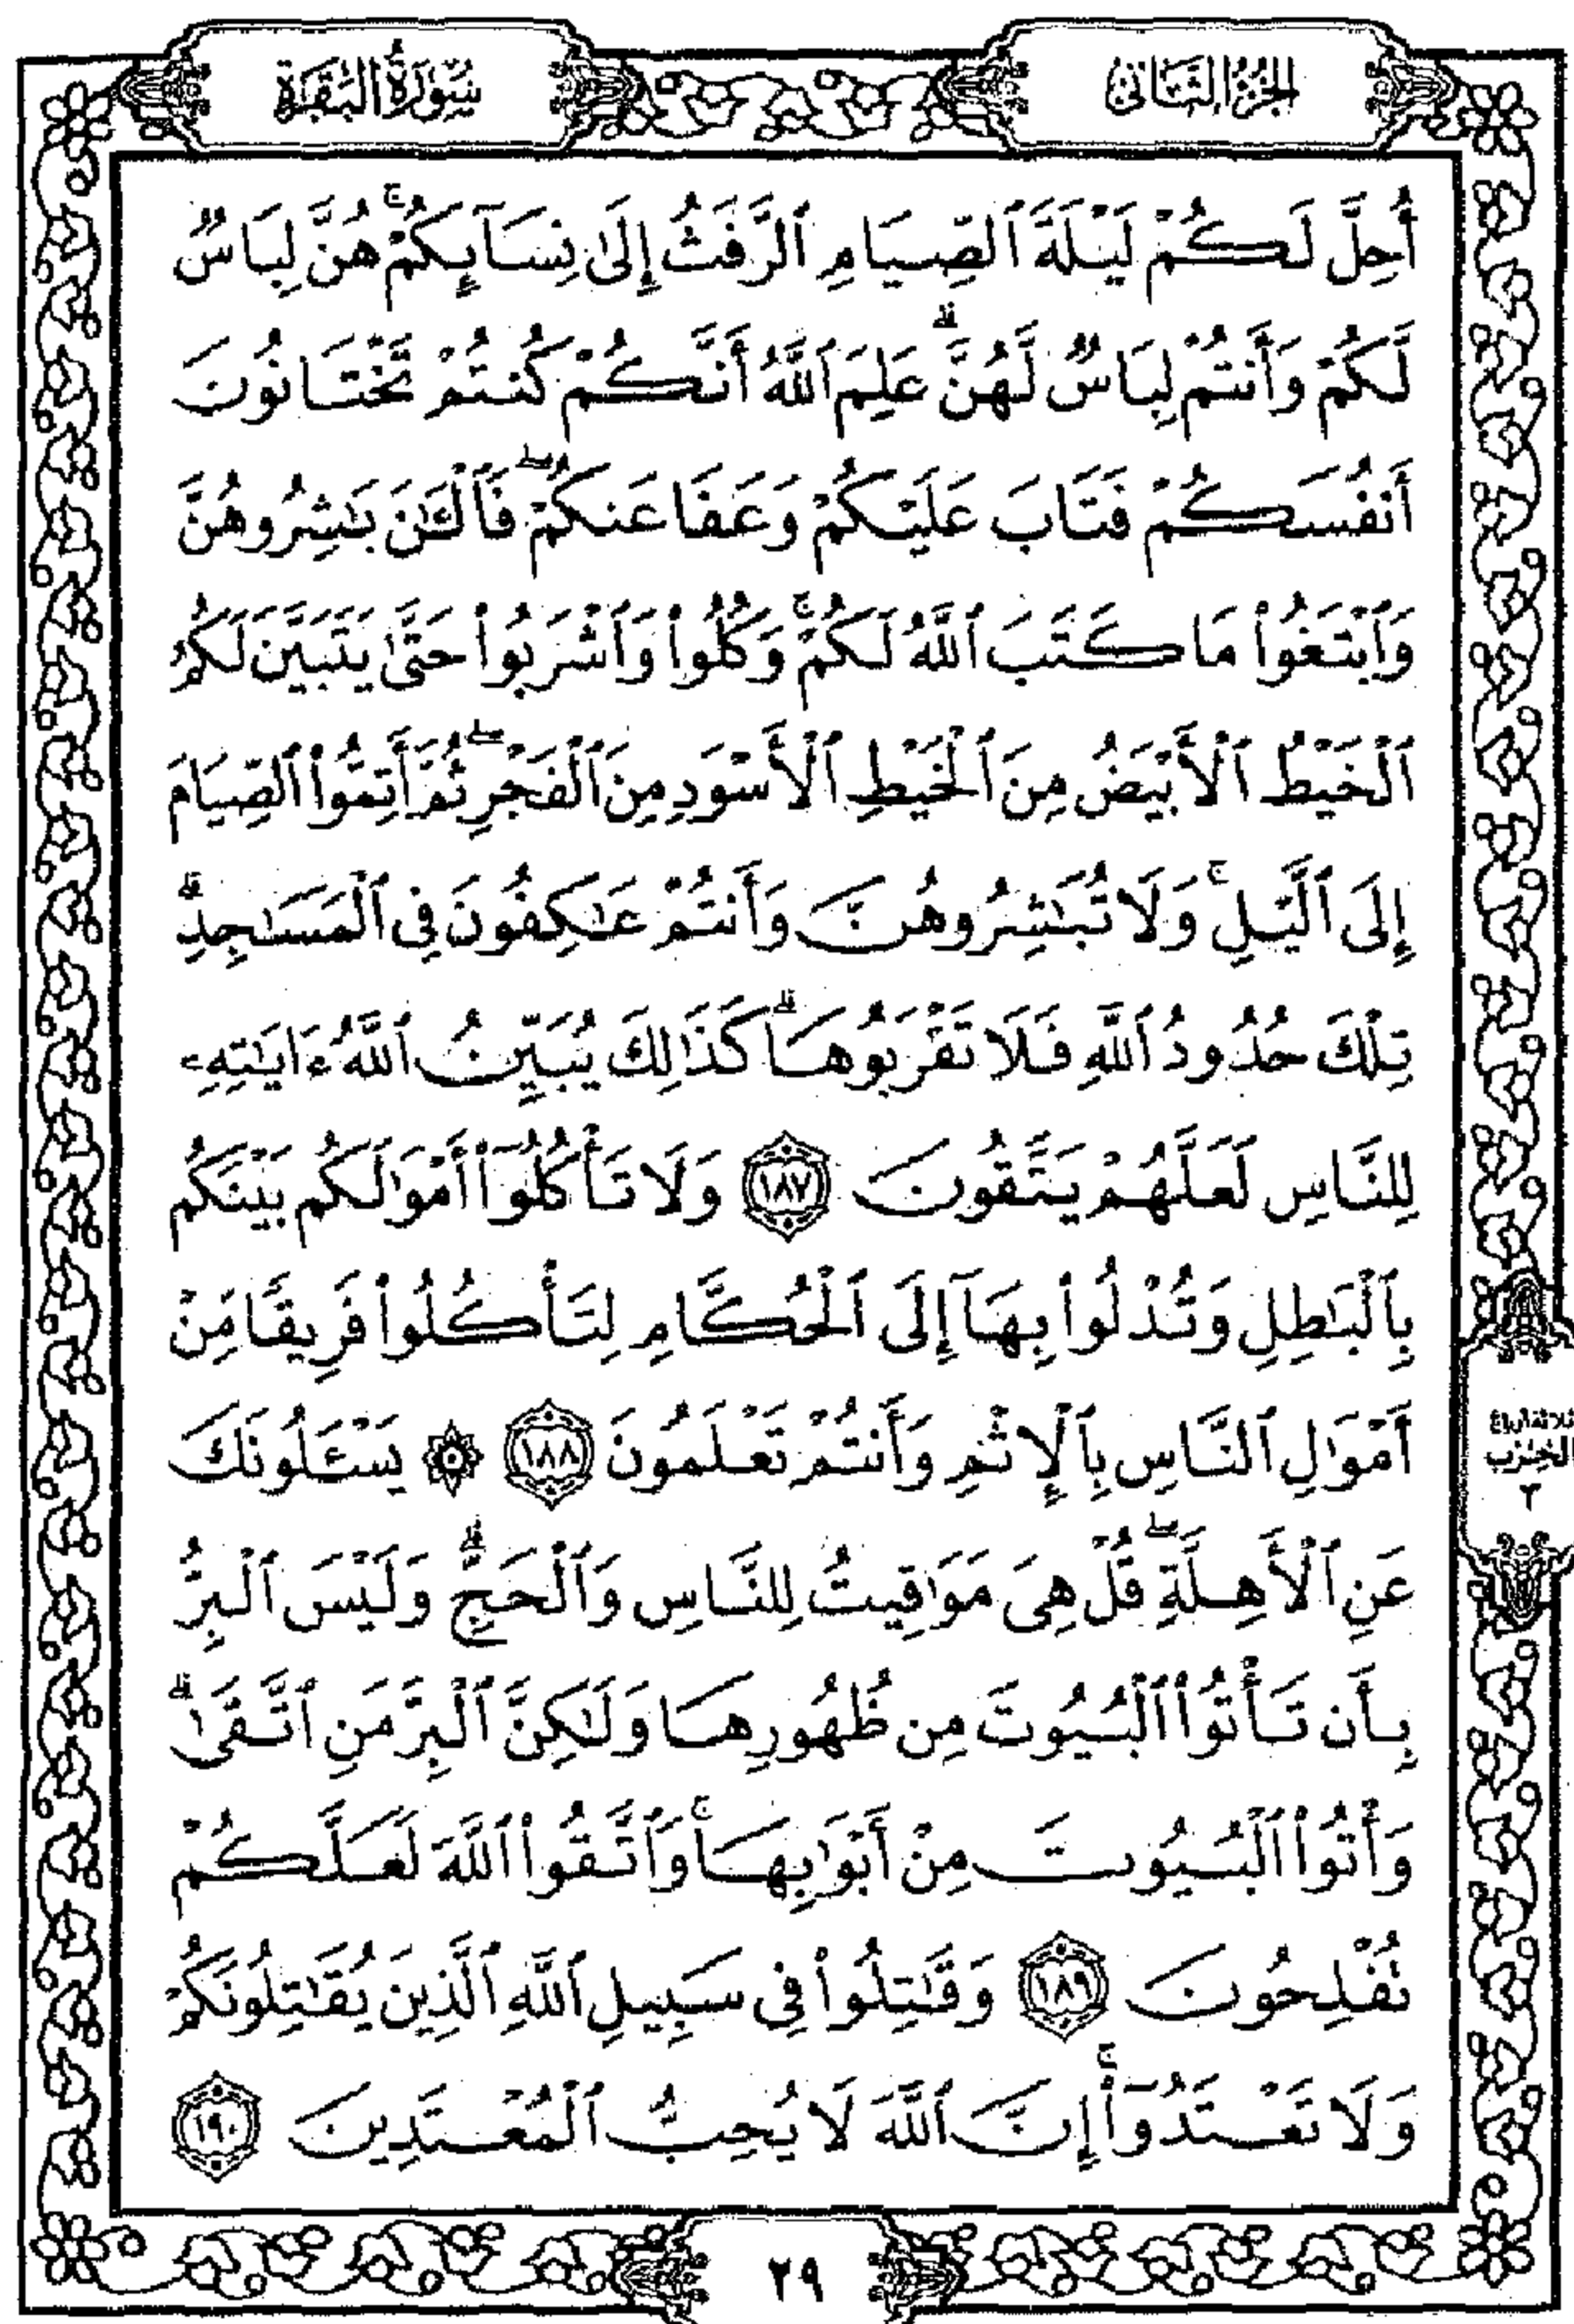 الجزء الثاني
سورة البقرة
أُحِلَّ لَكُمْ لَيْلَةَ ٱلصِّيَامِ ٱلرَّفَثُ إِلَىٰ نِسَآئِكُمْ ۚ هُنَّ لِبَاسٌ
لَّكُمْ وَأَنتُمْ لِبَاسٌ لَّهُنَّ ۗ عَلِمَ ٱللَّهُ أَنَّكُمْ كُنتُمْ تَخْتَانُونَ
أَنفُسَكُمْ فَتَابَ عَلَيْكُمْ وَعَفَا عَنكُمْ ۖ فَٱلْـَٰٔنَ بَـٰشِرُوهُنَّ
وَٱبْتَغُوا۟ مَا كَتَبَ ٱللَّهُ لَكُمْ ۚ وَكُلُوا۟ وَٱشْرَبُوا۟ حَتَّىٰ يَتَبَيَّنَ لَكُمُ
ٱلْخَيْطُ ٱلْأَبْيَضُ مِنَ ٱلْخَيْطِ ٱلْأَسْوَدِ مِنَ ٱلْفَجْرِ ۖ ثُمَّ أَتِمُّوا۟ ٱلصِّيَامَ
إِلَى ٱلَّيْلِ ۚ وَلَا تُبَـٰشِرُوهُنَّ وَأَنتُمْ عَـٰكِفُونَ فِى ٱلْمَسَـٰجِدِ ۗ
تِلْكَ حُدُودُ ٱللَّهِ فَلَا تَقْرَبُوهَا ۗ كَذَٰلِكَ يُبَيِّنُ ٱللَّهُ ءَايَـٰتِهِۦ
لِلنَّاسِ لَعَلَّهُمْ يَتَّقُونَ ١٨٧ وَلَا تَأْكُلُوٓا۟ أَمْوَٰلَكُم بَيْنَكُم
بِٱلْبَـٰطِلِ وَتُدْلُوا۟ بِهَآ إِلَى ٱلْحُكَّامِ لِتَأْكُلُوا۟ فَرِيقًا مِّنْ
أَمْوَٰلِ ٱلنَّاسِ بِٱلْإِثْمِ وَأَنتُمْ تَعْلَمُونَ ١٨٨ ۞ يَسْـَٔلُونَكَ
ثلاثة أرباع
الحزب
٣
عَنِ ٱلْأَهِلَّةِ ۖ قُلْ هِىَ مَوَٰقِيتُ لِلنَّاسِ وَٱلْحَجِّ ۗ وَلَيْسَ ٱلْبِرُّ
بِأَن تَأْتُوا۟ ٱلْبُيُوتَ مِن ظُهُورِهَا وَلَـٰكِنَّ ٱلْبِرَّ مَنِ ٱتَّقَىٰ ۗ
وَأْتُوا۟ ٱلْبُيُوتَ مِنْ أَبْوَٰبِهَا ۚ وَٱتَّقُوا۟ ٱللَّهَ لَعَلَّكُمْ
تُفْلِحُونَ ١٨٩ وَقَـٰتِلُوا۟ فِى سَبِيلِ ٱللَّهِ ٱلَّذِينَ يُقَـٰتِلُونَكُمْ
وَلَا تَعْتَدُوٓا۟ ۚ إِنَّ ٱللَّهَ لَا يُحِبُّ ٱلْمُعْتَدِينَ ١٩٠
٢٩